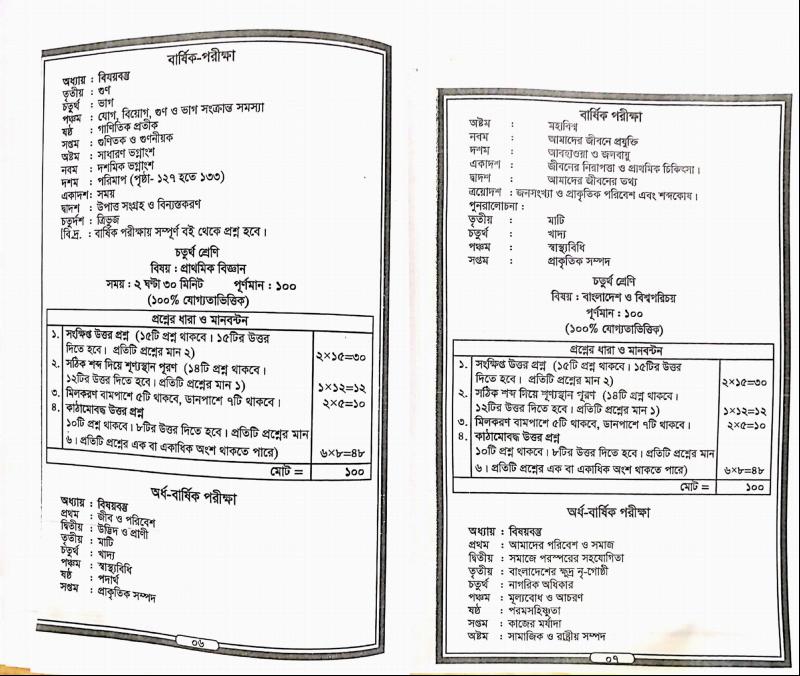 বার্ষিক-পরীক্ষা
অধ্যায় : বিষয়বস্তু
তৃতীয় : গুণ
চতুর্থ : ভাগ
পঞ্চম : যোগ, বিয়োগ, গুণ ও ভাগ সংক্রান্ত সমস্যা
ষষ্ঠ : গাণিতিক প্রতীক
সপ্তম : গুণিতক ও গুণনীয়ক
অষ্টম : সাধারণ ভগ্নাংশ
নবম : দশমিক ভগ্নাংশ
দশম : পরিমাপ (পৃষ্ঠা- ১২৭ হতে ১৩৩)
একাদশ: সময়
দ্বাদশ : উপাত্ত সংগ্রহ ও বিন্যস্তকরণ
চতুর্দশ : ত্রিভুজ
[বি.দ্র. : বার্ষিক পরীক্ষায় সম্পূর্ণ বই থেকে প্রশ্ন হবে।
চতুর্থ শ্রেণি
বিষয় : প্রাথমিক বিজ্ঞান
সময় : ২ ঘন্টা ৩০ মিনিট পূর্ণমান : ১০০
(১০০% যোগ্যতাভিত্তিক)
প্রশ্নের ধারা ও মানবন্টন
১. সংক্ষিপ্ত উত্তর প্রশ্ন (১৫টি প্রশ্ন থাকবে। ১৫টির উত্তর
দিতে হবে। প্রতিটি প্রশ্নের মান ২) ২×১৫=৩০
২. সঠিক শব্দ দিয়ে শূণ্যস্থান পূরণ (১৪টি প্রশ্ন থাকবে।
১২টির উত্তর দিতে হবে। প্রতিটি প্রশ্নের মান ১) ১×১২=১২
৩. মিলকরণ বামপাশে ৫টি থাকবে, ডানপাশে ৭টি থাকবে। ২×৫=১০
৪. কাঠামোবদ্ধ উত্তর প্রশ্ন
১০টি প্রশ্ন থাকবে। ৮টির উত্তর দিতে হবে। প্রতিটি প্রশ্নের মান
৬। প্রতিটি প্রশ্নের এক বা একাধিক অংশ থাকতে পারে) ৬×৮=৪৮
মোট = ১০০
অর্ধ-বার্ষিক পরীক্ষা
অধ্যায় : বিষয়বস্তু
প্রথম : জীব ও পরিবেশ
দ্বিতীয় : উদ্ভিদ ও প্রাণী
তৃতীয় : মাটি
চতুর্থ : খাদ্য
পঞ্চম : স্বাস্থ্যবিধি
ষষ্ঠ : পদার্থ
সপ্তম : প্রাকৃতিক সম্পদ
০৬
বার্ষিক পরীক্ষা
অষ্টম : মহাবিশ্ব
নবম : আমাদের জীবনে প্রযুক্তি
দশম : আবহাওয়া ও জলবায়ু
একাদশ : জীবনের নিরাপত্তা ও প্রাথমিক চিকিৎসা।
দ্বাদশ : আমাদের জীবনের তথ্য
ত্রয়োদশ : জনসংখ্যা ও প্রাকৃতিক পরিবেশ এবং শব্দকোষ।
পুনরালোচনা :
তৃতীয় : মাটি
চতুর্থ : খাদ্য
পঞ্চম : স্বাস্থ্যবিধি
সপ্তম : প্রাকৃতিক সম্পদ
চতুর্থ শ্রেণি
বিষয় : বাংলাদেশ ও বিশ্বপরিচয়
পূর্ণমান : ১০০
(১০০% যোগ্যতাভিত্তিক)
প্রশ্নের ধারা ও মানবন্টন
১. সংক্ষিপ্ত উত্তর প্রশ্ন (১৫টি প্রশ্ন থাকবে। ১৫টির উত্তর
দিতে হবে। প্রতিটি প্রশ্নের মান ২) ২×১৫=৩০
২. সঠিক শব্দ দিয়ে শূণ্যস্থান পূরণ (১৪টি প্রশ্ন থাকবে।
১২টির উত্তর দিতে হবে। প্রতিটি প্রশ্নের মান ১) ১×১২=১২
৩. মিলকরণ বামপাশে ৫টি থাকবে, ডানপাশে ৭টি থাকবে। ২×৫=১০
৪. কাঠামোবদ্ধ উত্তর প্রশ্ন
১০টি প্রশ্ন থাকবে। ৮টির উত্তর দিতে হবে। প্রতিটি প্রশ্নের মান
৬। প্রতিটি প্রশ্নের এক বা একাধিক অংশ থাকতে পারে) ৬×৮=৪৮
মোট = ১০০
অর্ধ-বার্ষিক পরীক্ষা
অধ্যায় : বিষয়বস্তু
প্রথম : আমাদের পরিবেশ ও সমাজ
দ্বিতীয় : সমাজে পরস্পরের সহযোগিতা
তৃতীয় : বাংলাদেশের ক্ষুদ্র নৃ-গোষ্ঠী
চতুর্থ : নাগরিক অধিকার
পঞ্চম : মূল্যবোধ ও আচরণ
ষষ্ঠ : পরমসহিষ্ণুতা
সপ্তম : কাজের মর্যাদা
অষ্টম : সামাজিক ও রাষ্ট্রীয় সম্পদ
০৭